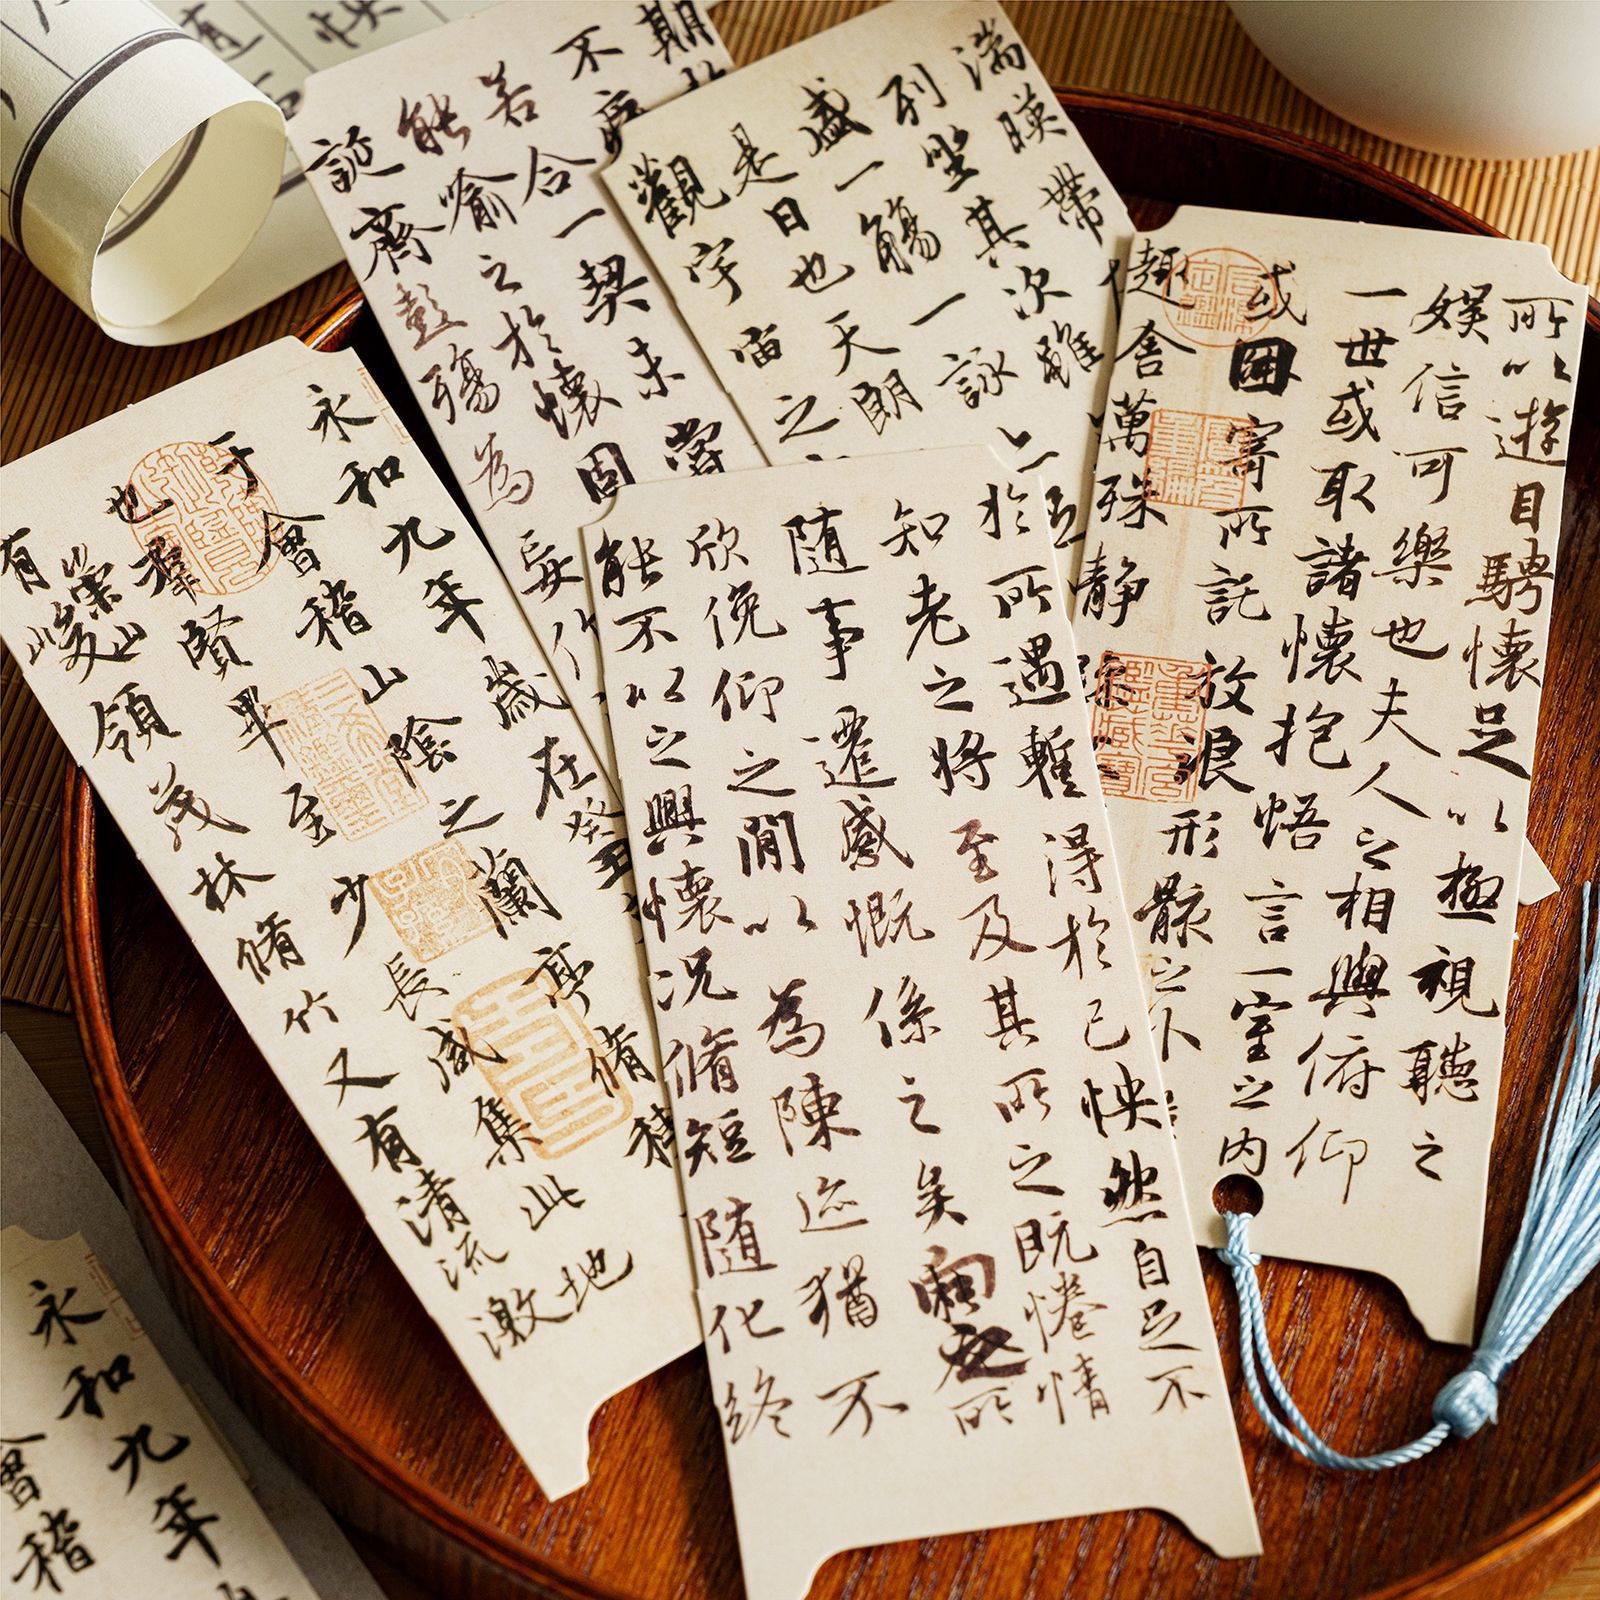 期
不
若合一契未嘗
能喻之於懷固
誕齊彭殤為妄作
湍暎帶
列坐其次雖
盛一觴一詠
是日也天朗
觀宇宙之
所以遊目騁懷足以極視聽之
娛信可樂也夫人之相與俯仰
一世或取諸懷抱悟言一室之內
或因寄所託放浪形骸之外
趣舍萬殊靜躁
永和九年歲在癸丑
于會稽山陰之蘭亭脩稧
也羣賢畢至少長咸集此地
有崇山峻領茂林脩竹又有清流激
於所遇暫得於己怏然自足不
知老之將至及其所之既惓情
隨事遷感慨係之矣向之所
欣俛仰之閒以為陳迹猶不
能不以之興懷況脩短隨化終
永和九年
會稽